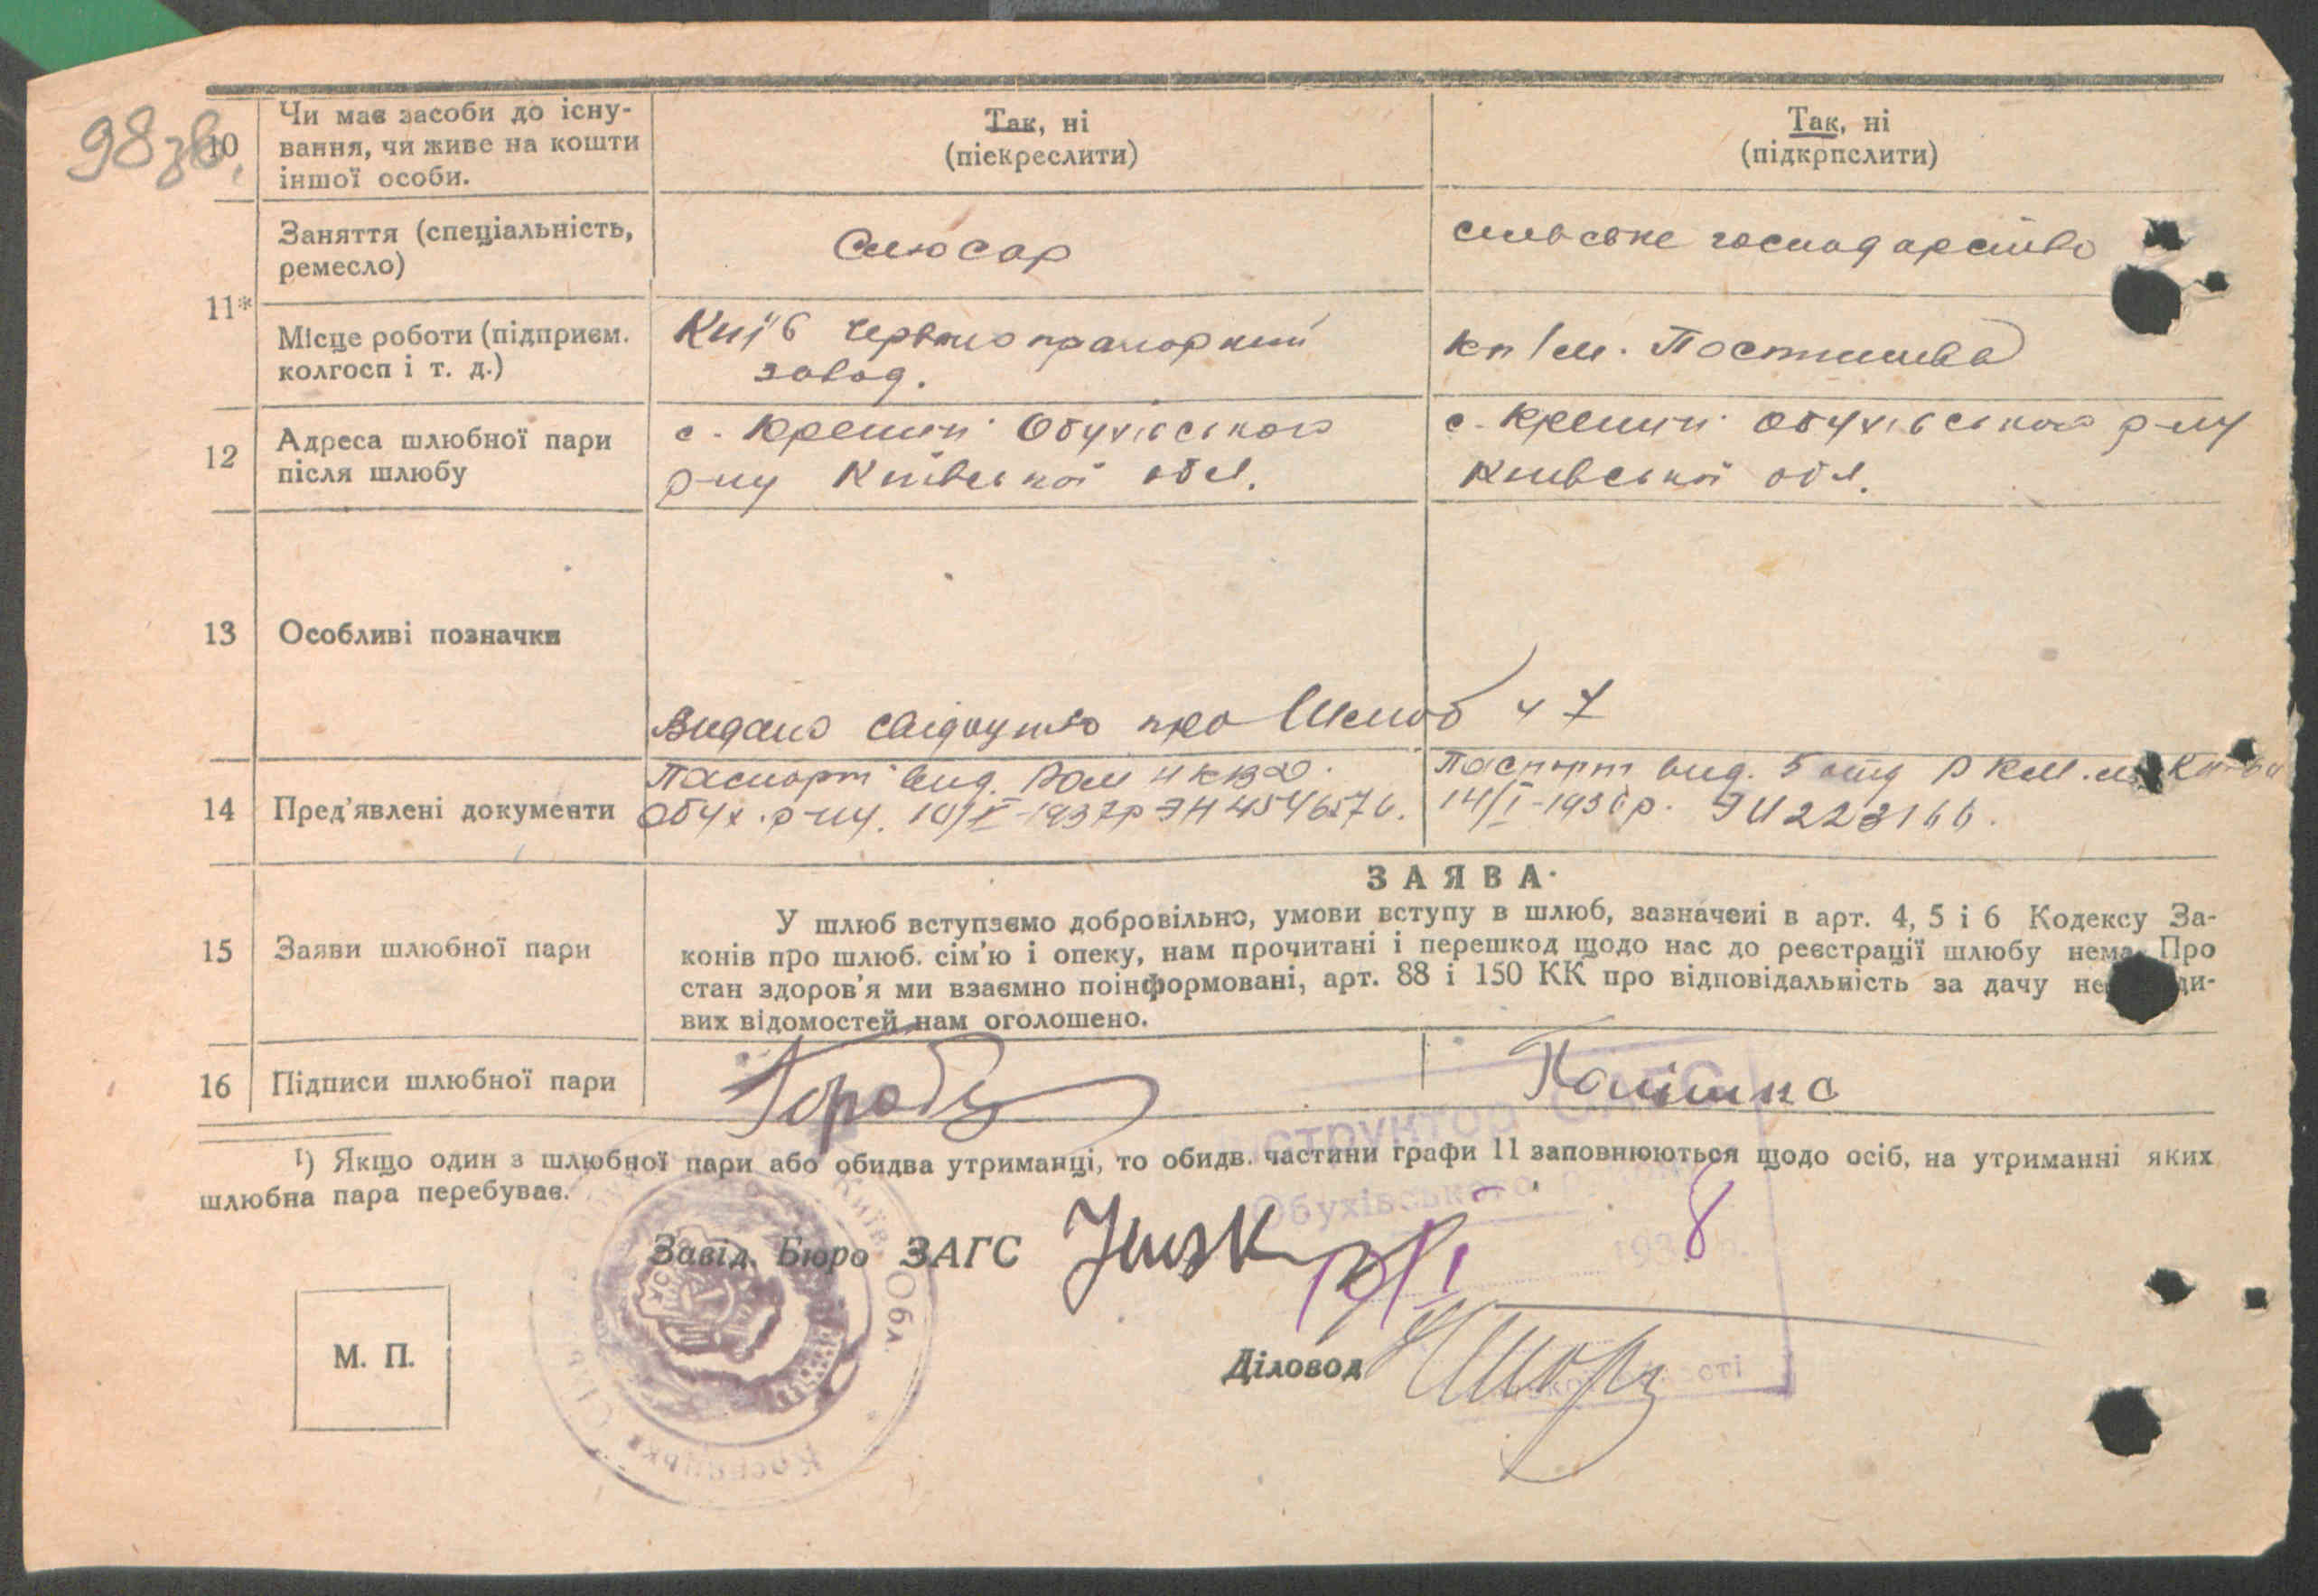 98 зв.
10
Чи має засоби до існу-
вання, чи живе на кошти
іншої особи.
Так, ні
(піекреслити)
Так, ні
(підкрпслити)
11*
Заняття (спеціальність,
ремесло)
Слюсар
сільське господарство
Місце роботи (підприєм.
колгосп і т. д.)
Київ Червонопрапорний
завод.
кп/ім. Постишева
12
Адреса шлюбної пари
після шлюбу
с. Обухівського
р-ну Київської обл.
с. Обухівського р-ну
Київської обл.
13
Особливі позначки
Видано свідоцтво про Шлюб ч 7
14
Пред'явлені документи
Паспорт вид. НКВД.
Обух. р-ну. 1937р ЭН
Паспорт вид. 5 отд РКМ. м. Києва
14/I-193 р. 223166.
15
Заяви шлюбної пари
ЗАЯВА.
У шлюб вступаємо добровільно, умови вступу в шлюб, зазначені в арт. 4, 5 і 6 Кодексу За-
конів про шлюб. сім'ю і опеку, нам прочитані і перешкод щодо нас до реєстрації шлюбу нема. Про
стан здоров'я ми взаємно поінформовані, арт. 88 і 150 КК про відповідальність за дачу не ди-
вих відомостей нам оголошено.
16
Підписи шлюбної пари
1) Якщо один з шлюбної пари або обидва утриманці, то обидв. частини графи 11 заповнюються щодо осіб, на утриманні яких
шлюбна пара перебуває.
Обухівського
193 8
Завід. Бюро ЗАГС
М. П.
Діловод